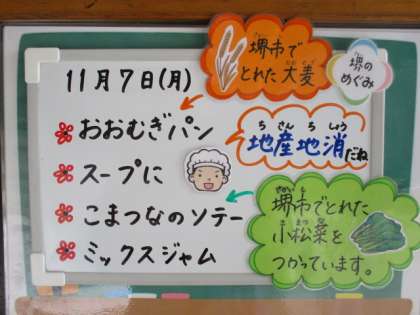 11月7日(月)
おおむぎパン
スープに
こまつなのソテー
ミックスジャム
堺市で
とれた大麦
堺の
めぐみ
ち さん ち しょう
地産地消だね
堺市でとれた
小松菜を
つかっています。